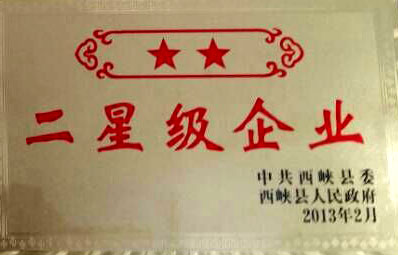 二星级企业
中共西峡县委
西峡县人民政府
2013年2月